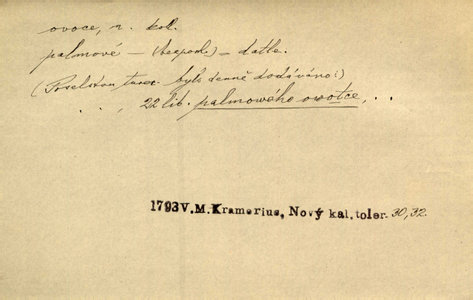 ovoce, n. koll.
palmové — (bezpoch.) = datle.
(Poselstvu turec. bylo denně dodáváno:)
. . , 22 lib. palmového ovotce, . .
1793 V. M. Kramerius, Nový kal. toler. 30, 32.